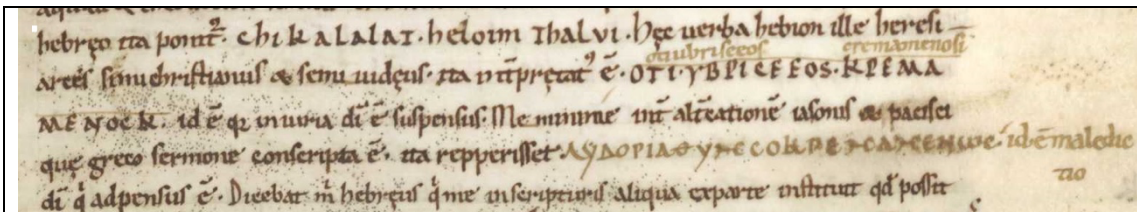 hebręo ita ponit᷒. chi KALALAT. heloim Thalvi. Hęc uerba hebion ille heresi
otiubriseos cremamenosi
arces semichristianus & semiiudęus. ita int̄p̄tat᷒ ē. OTI. YBPICEEOS. KPEMA
MENOCK. id ē q̄ iniuria dī ē suspensus. Me mini me int̄ altcationē iasonis & papisci
quę greco sermone conscripta ē. ita repperisse. ΛΥΔΟΡΙΑΘΥ idē maledic
tio
dī q̄ adpensus ē. Dicebat m̄ hebręus q̄ me inscripturis aliqua exparte instituit qd̄ possit